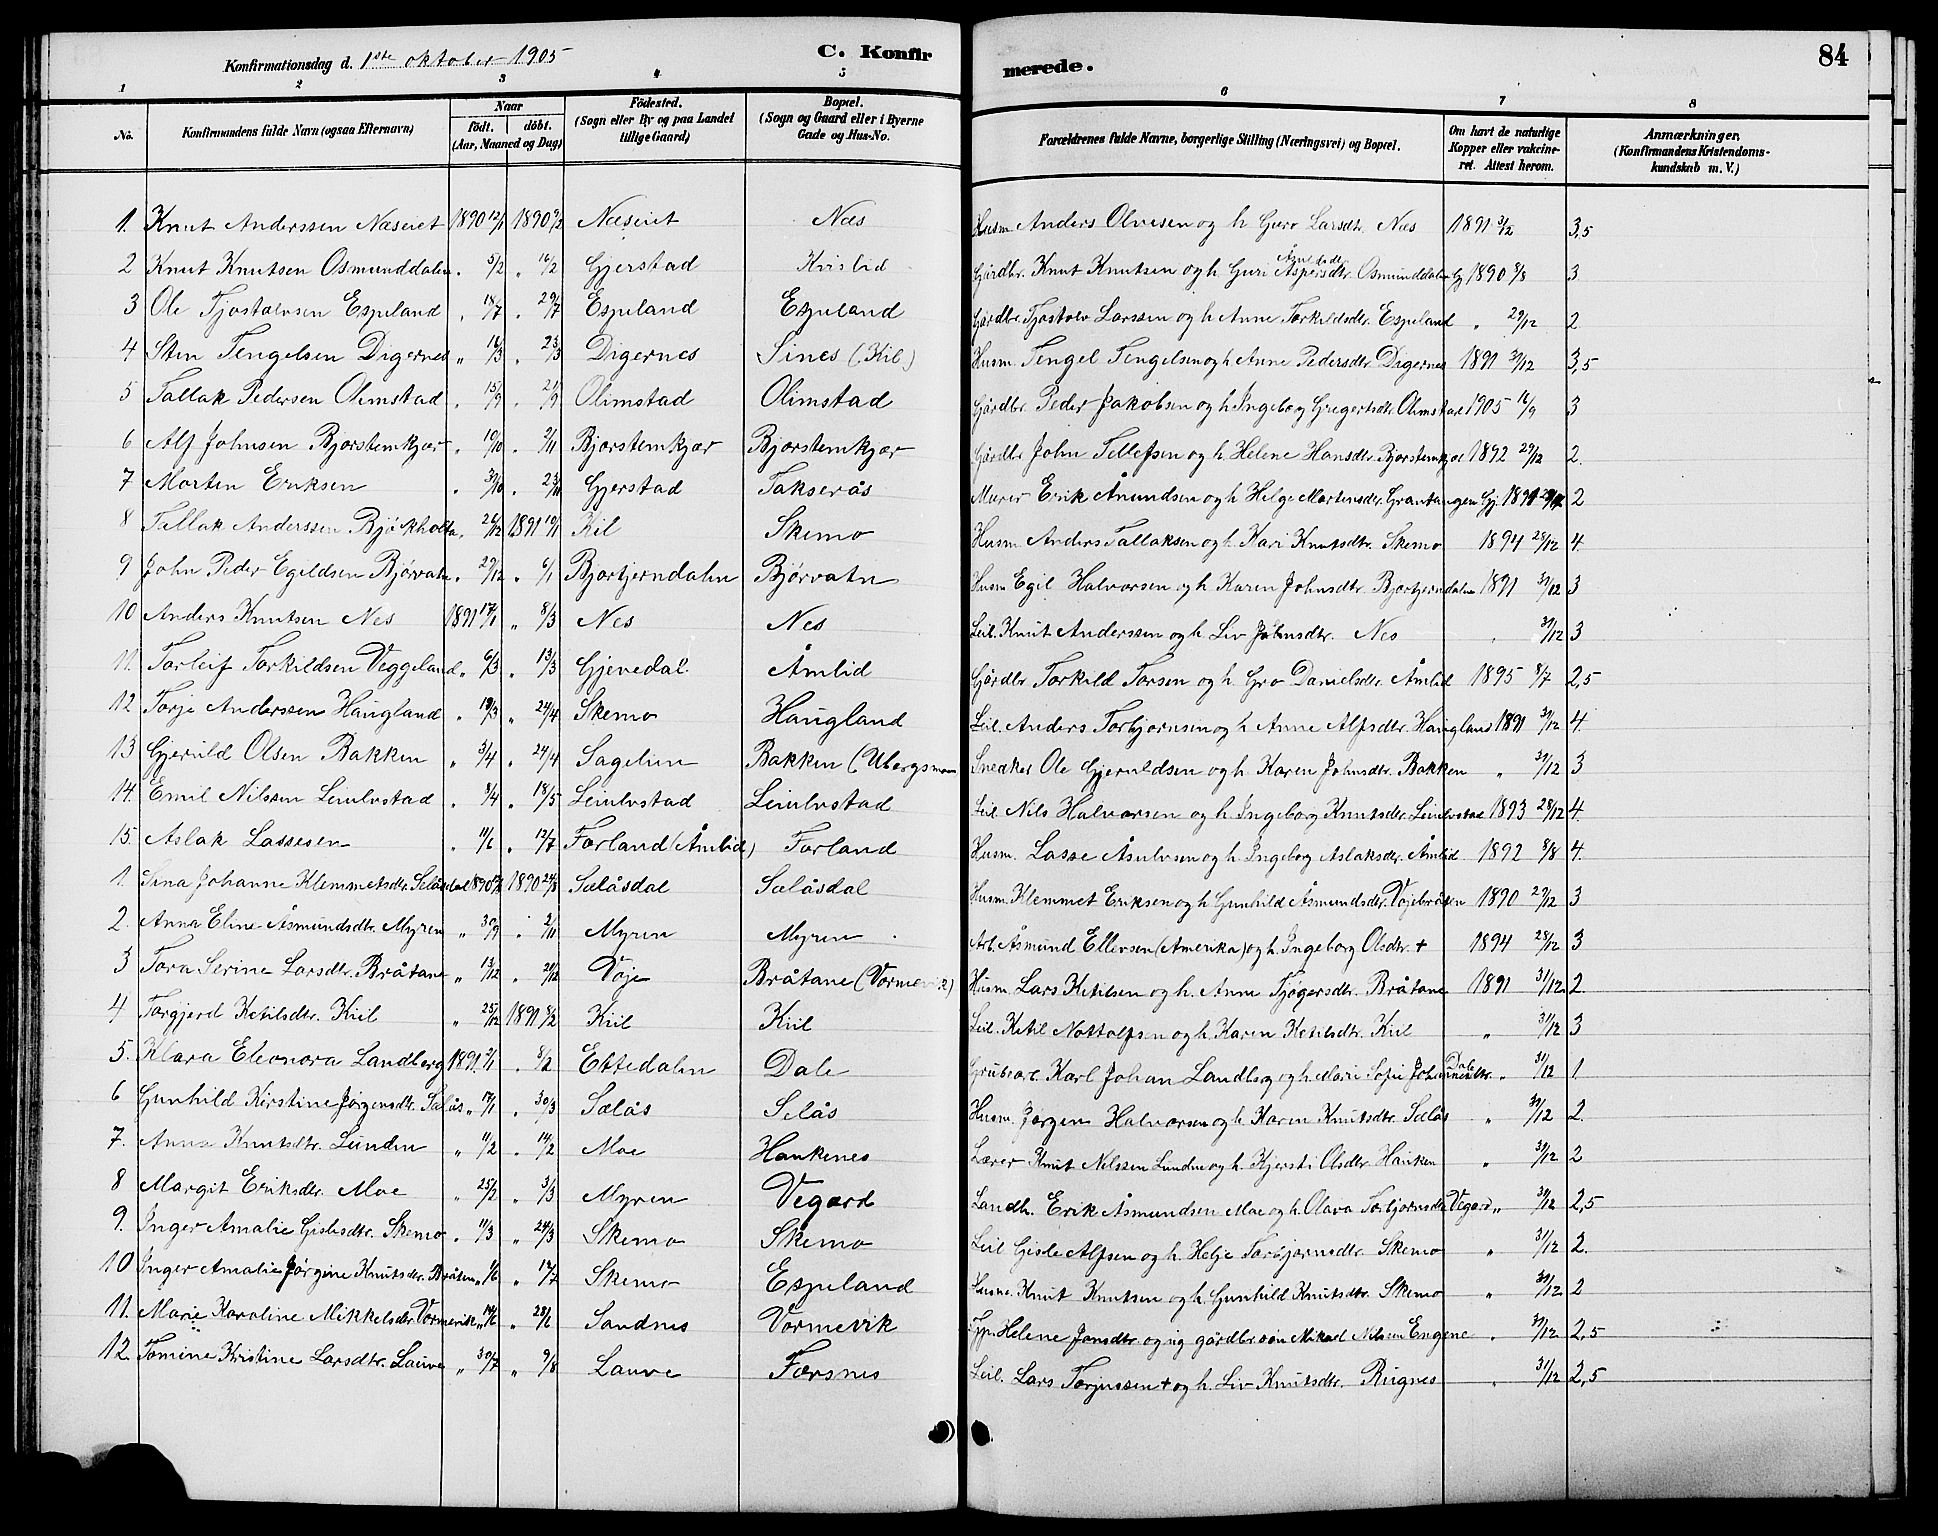 Konfirmationsdag d. 1ste oktober 1905
C. Konfirmerede.
84
1 2 3 4 5 6 7 8
No. Konfirmandens fulde Navn (ogsaa Efternavn) Naar født. døbt. (Aar, Maaned og Dag) Födested. (Sogn eller By og paa Landet tillige Gaard) Bopæl. (Sogn og Gaard eller i Byerne Gade og Hus-No. Forældrenes fulde Navne, borgerlige Stilling (Næringsvei) og Bopæl. Om havt de naturlige Kopper eller vakcineret. Attest herom. Anmærkninger. (Konfirmandens Kristendomskundskab m. V.)
1. Knut Anderssen Næseiet 1890 12/1 1890 9/2 Næseiet Næs Husm. Anders Olvesen og h. Guro Larsdtr. Næs 1891 3/12 3,5
2 Knut Knutsen Osmunddalen " 5/2 " 16/2 Gjerstad Kvislid Gårdbr. Knut Knutsen og h. Guri Aspersdtr. Osmunddalen Gj 1890 8/8 3
3 Ole Tjostolvsen Espeland " 18/7 " 29/7 Espeland Espeland Gårdbr. Tjostolv Larssen og h. Anne Torkildsdtr. Espeland " 29/12 2
4 Sten Tengelsen Digernes " 16/3 " 23/3 Digernes Sines (Kil) Husm. Tengel Tengelsen og h. Anne Pedersdtr. Digernes 1891 31/12 3,5
5 Tallak Pedersen Olimstad " 15/9 " 21/9 Olimstad Olimstad Gårdbr. Peder Jakobsen og h. Ingeborg Gregertsdtr. Olimstad 1905 16/9 3
6 Alf Johnsen Bjorstemkjær " 10/10 " 2/11 Bjorstemkjær Bjorstemkjær Gårdbr. John Tellefsen og h. Helene Hansdtr. Bjorstemkjær 1892 29/12 2.
7 Morten Eriksen " 30/10 " 23/11 Gjerstad Takserås Murer Erik Ånundsen og h. Helge Mortensdtr. Grantangen Gj. 1891 2
8 Tallak Anderssen Bjørkholta " 26/12 1891 10/1 Kil Skemo Husm. Anders Tallaksen og h. Kari Knutsdtr. Skemo 1894 28/12 4.
9 John Peder Egildsen Bjørvatn " 29/12 " 6/1 Bjortjerndalen Bjørvatn Husm Egil Halvorsen og h. Karen Johnsdtr. Bjortjerndalen 1891 31/12 3
10 Anders Knutsen Nes 1891 17/1 " 8/3 Nes Nes Leil. Knut Anderssen og h. Liv Johnsdtr. Nes " 31/12 3
11. Torleif Torkildsen Veggeland " 6/3 " 13/3 Gjevedal Åmlid Gårdbr Torkild Torsen og h. Gro Danielsdtr. Åmlid 1895 8/7 2,5
12 Torje Anderssen Haugland " 19/3 " 24/4 Skemo Haugland Leil. Anders Torbjornsen og h Anne Alfsdtr. Haugland 1891 31/12 4.
13 Gjeruld Olsen Bakken " 3/4 " 24/4 Sagelien Bakken (Ubergsmoen Snedker Ole Gjeruldsen og h. Karen Johnsdtr. Bakken " 31/12 3
14. Emil Nilssen Leiulvstad " 8/4 " 18/5 Leiulvstad Leiulvstad Leil Nils Halvorsen og h Ingeborg Knutsdtr Leiulvstad 1893 28/12 4.
15. Aslak Lassesen " 11/6 " 12/7 Forland (Åmlid) Forland Husm. Lasse Åsulvsen og h Ingeborg Aslaksdtr. Åmlid 1892 8/8 4.
1. Stina Johanne Klemmetsdtr. Selåsdal 1890 1890 24/8 Sælåsdal Sælåsdal Husm. Klemmet Eriksen og h Gunhild Åsmundsdtr. Vøjebråten 1890 29/12 3
2. Anna Eline Åsmundsdtr. Myren " 30/9 " 2/11 Myren Myren Arb. Åsmund Ellevsen (Amerika) og h. Ingeborg Olsdtr. + 1894 28/12 3
3 Tora Serine Larsdtr. Bråtane " 13/12 " 21/12 Vøje Bråtane (Vormevik) Husm. Lars Ketilsen og h. Anne Tjøgersdtr. Bråtane 1891 31/12 2.
4 Torgjerd Ketilsdtr. Kiil " 25/12 1891 8/2 Kiil Kiil Leil. Ketil Nottolfsen og h. Karen Ketilsdtr. Kiil " 31/12 3
5. Klara Eleonora Landberg 1891. 2/1 " 8/2 Ettedalen Dale Grubearb. Karl Johan Landberg og h. Marie Sofie Johannesdtr. Dale " 31/12 1.
6 Gunhild Kirstine Jørgensdtr. Sælås " 17/1 " 30/3 Sælås Selås Husm. Jørgen Halvorsen og h Karen Knutsdtr. Sælås " 31/12 2.
7. Anna Knutsdtr. Lunden " 11/2 " 14/2 Moe Haukenes Lærer Knut Nilssen Lunden og h. Kjersti Olsdtr. Hauken " 31/12 2
8 Margit Eriksdtr. Moe " 25/2 " 3/3 Myren Vegard Landh. Erik Åsmundsen Moe og h. Olava Torbjornsdtr Vegard " 31/12 2,5
9. Inger Amalie Gislesdtr. Skemo " 11/3 " 24/3 Skemo Skemo Leil Gisle Alfsen og h. Helje Torbjornsdtr. Skemo " 31/12 2.
10 Inger Amalie Jørgine Knutsdtr. Bråten " " 14/7 Skemo Espeland Husm. Knut Knutsen og h. Gunhild Knutsdtr. Skemo " 31/12 2
11. Marie Karoline Mikkelsdtr. Vormevik " 14/6 " 28/6 Sandnes Vormevik Helene Jonsdtr og ug gårdbr.søn Mikael Nilssen Engene " 31/12 2,5
12. Tomine Kristine Larsdtr. Lauve " 30/7 " 9/8 Lauve Førsnes Leil. Lars Torjussen + og h. Liv Knutsdtr. Rugnes " 31/12 2,5